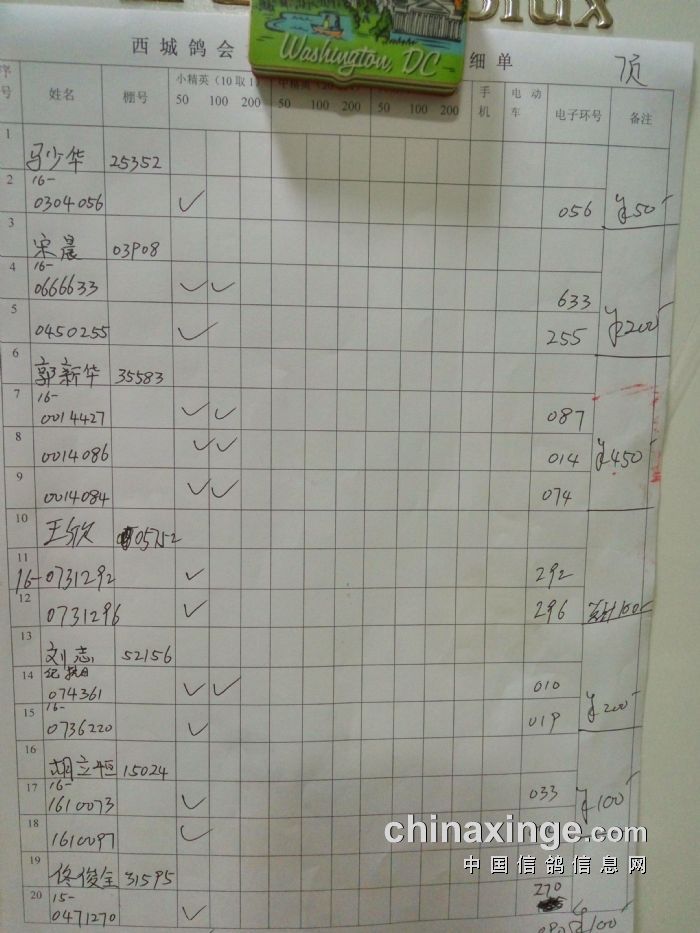 lux
Washington, DC
西城鸽会 细单
序号 姓名 棚号 小精英（10取1） 50 100 200 50 100 200 200 手机 电动车 电子环号 备注
1 马少华 25352
2 16-0304056 ✓ 056 ¥50
3 宋晨 03908
4 16-0666633 ✓ ✓ 633
5 0450255 ✓ 255 ¥200
6 郭新华 35583
7 16-0014427 ✓ ✓ 087
8 0014086 ✓ ✓ 014 ¥450
9 0014084 ✓ ✓ 074
10 王欣 05752
11 16-0731292 ✓ 292
12 0731296 ✓ 296 100
13 刘志 52156
14 074361 ✓ ✓ 010
15 16-0736220 ✓ 019 ¥200
16 胡立恒 15024
17 16-1610073 ✓ 033 ¥100
18 1610097 ✓
19 佟俊全 31595
20 15-0471270 ✓ 270
chinaxinge.com
中国信鸽信息网